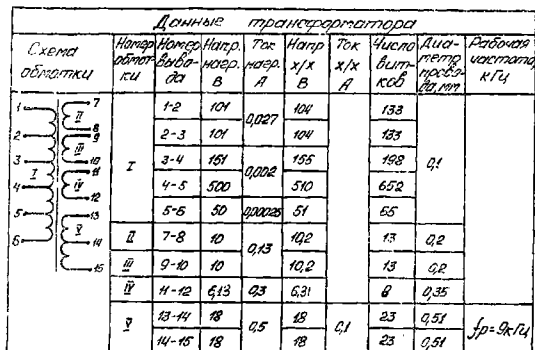 Данные трансформатора
Схема обмотки | Номер обмотки | Номер вывода | Напр. нагр. В | Ток нагр. А | Напр х/х В | Ток х/х А | Число витков | Диаметр провода, мм | Рабочая частота, кГц
I | 1-2 | 101 | 0,027 | 104 | 133 | 0,1
2-3 | 101 | 104 | 133
3-4 | 151 | 0,002 | 155 | 198
4-5 | 500 | 510 | 652
5-6 | 50 | 0,00025 | 51 | 65
II | 7-8 | 10 | 0,13 | 10,2 | 13 | 0,2
III | 9-10 | 10 | 10,2 | 13 | 0,2
IV | 11-12 | 6,13 | 0,3 | 6,31 | 8 | 0,35
V | 13-14 | 18 | 0,5 | 18 | 0,1 | 23 | 0,51 | fр=9кГц
14-15 | 18 | 18 | 23 | 0,51
1 2 3 4 5 6
I
7 II 8
9 III 10
11 IV 12
13 V 14 15